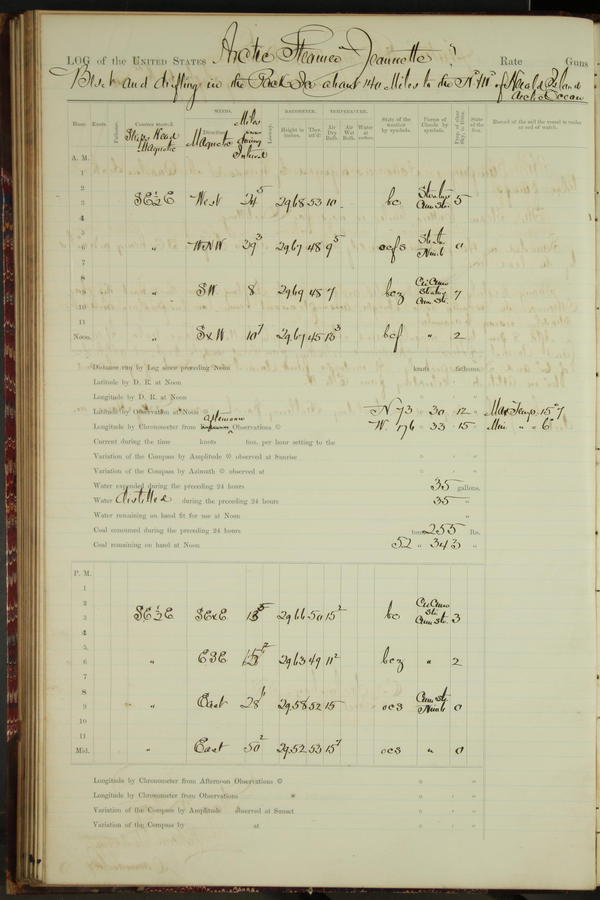 LOG of the UNITED STATES Arctic Steamer Jeannette, Rate Guns
Beset and drifting in the Pack Ice about 140 Miles to the Nd & Wd of Herald Island
Arctic Ocean
WINDS. BAROMETER. TEMPERATURE.
Hour. Knots. Fathoms. Courses steered. Ships Head Magnetic Direction Magnetic Miles during Interval Leeway. Height in inches. Ther. att'd. Air Dry Bulb. Air Wet Bulb. Water at surface. State of the weather by symbols. Forms of Clouds by symbols. Prop. of clear Sky, in 10ths. State of the Sea. Record of the sail the vessel is under at end of watch.
A. M.
1
2
3 SE½E West 24 5 29.68 53 10 bc Stratus Cum Str. 5
4
5
6 " WNW 29 3 29.67 48 9 5 ocfs Strat Nimb 0
7
8
9 " SW 8 29.69 48 7 bcz Cir Cum Stratus Cum Str. 7
10
11
Noon. " SxW 10 7 29.67 45 13 3 bcf " 2
Distance run by Log since preceding Noon knots fathoms.
Latitude by D. R. at Noon
Longitude by D. R. at Noon
Latitude by Observation at Noon N 73 30 12 Max Temp. 15° 7
Longitude by Chronometer from afternoon Observations W. 176 33 15 Min " " 6°
Current during the time knots fms. per hour setting to the
Variation of the Compass by Amplitude observed at Sunrise
Variation of the Compass by Azimuth observed at
Water expended during the preceding 24 hours 35 gallons.
Water distilled during the preceding 24 hours 35 "
Water remaining on hand fit for use at Noon "
Coal consumed during the preceding 24 hours tons 255 lbs.
Coal remaining on hand at Noon 52 " 343 "
P. M.
1
2
3 SE½E SExE 29.66 50 15 2 bc Cir Cum Str. Cum Str. 3
4
5
6 " ESE 29.63 49 11 2 bcz " 2
7
8
9 " East 28 6 29.58 52 15 ocs Cum Str Nimb 0
10
11
Mid. " East 30 2 29.52 53 15 7 ocs " 0
Longitude by Chronometer from Afternoon Observations
Longitude by Chronometer from Observations
Variation of the Compass by Amplitude observed at Sunset
Variation of the Compass by at